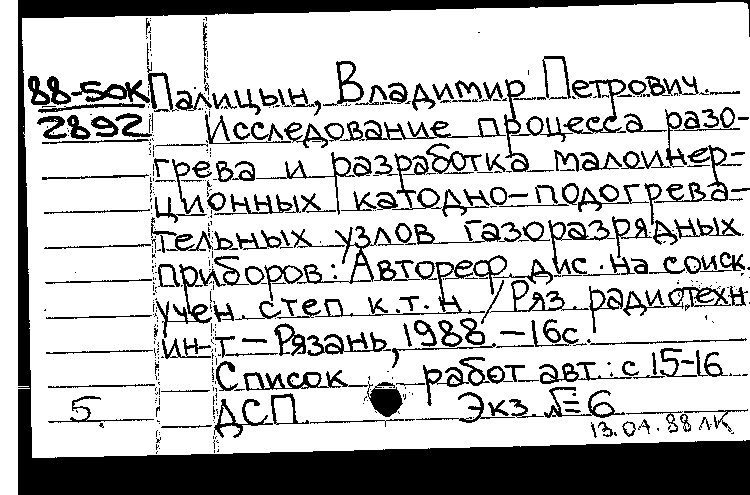 88-50К Палицын, Владимир Петрович.
2892 Исследование процесса разо-
грева и разработка малоинер-
ционных катодно-подогрева-
тельных узлов газоразрядных
приборов: Автореф. дис. на соиск.
учен. степ. к.т.н / Ряз. радиотехн
ин-т - Рязань, 1988. - 16с.
Список работ авт.: с 15-16
5. ДСП. Экз. № 6
13.04.88 ЛК